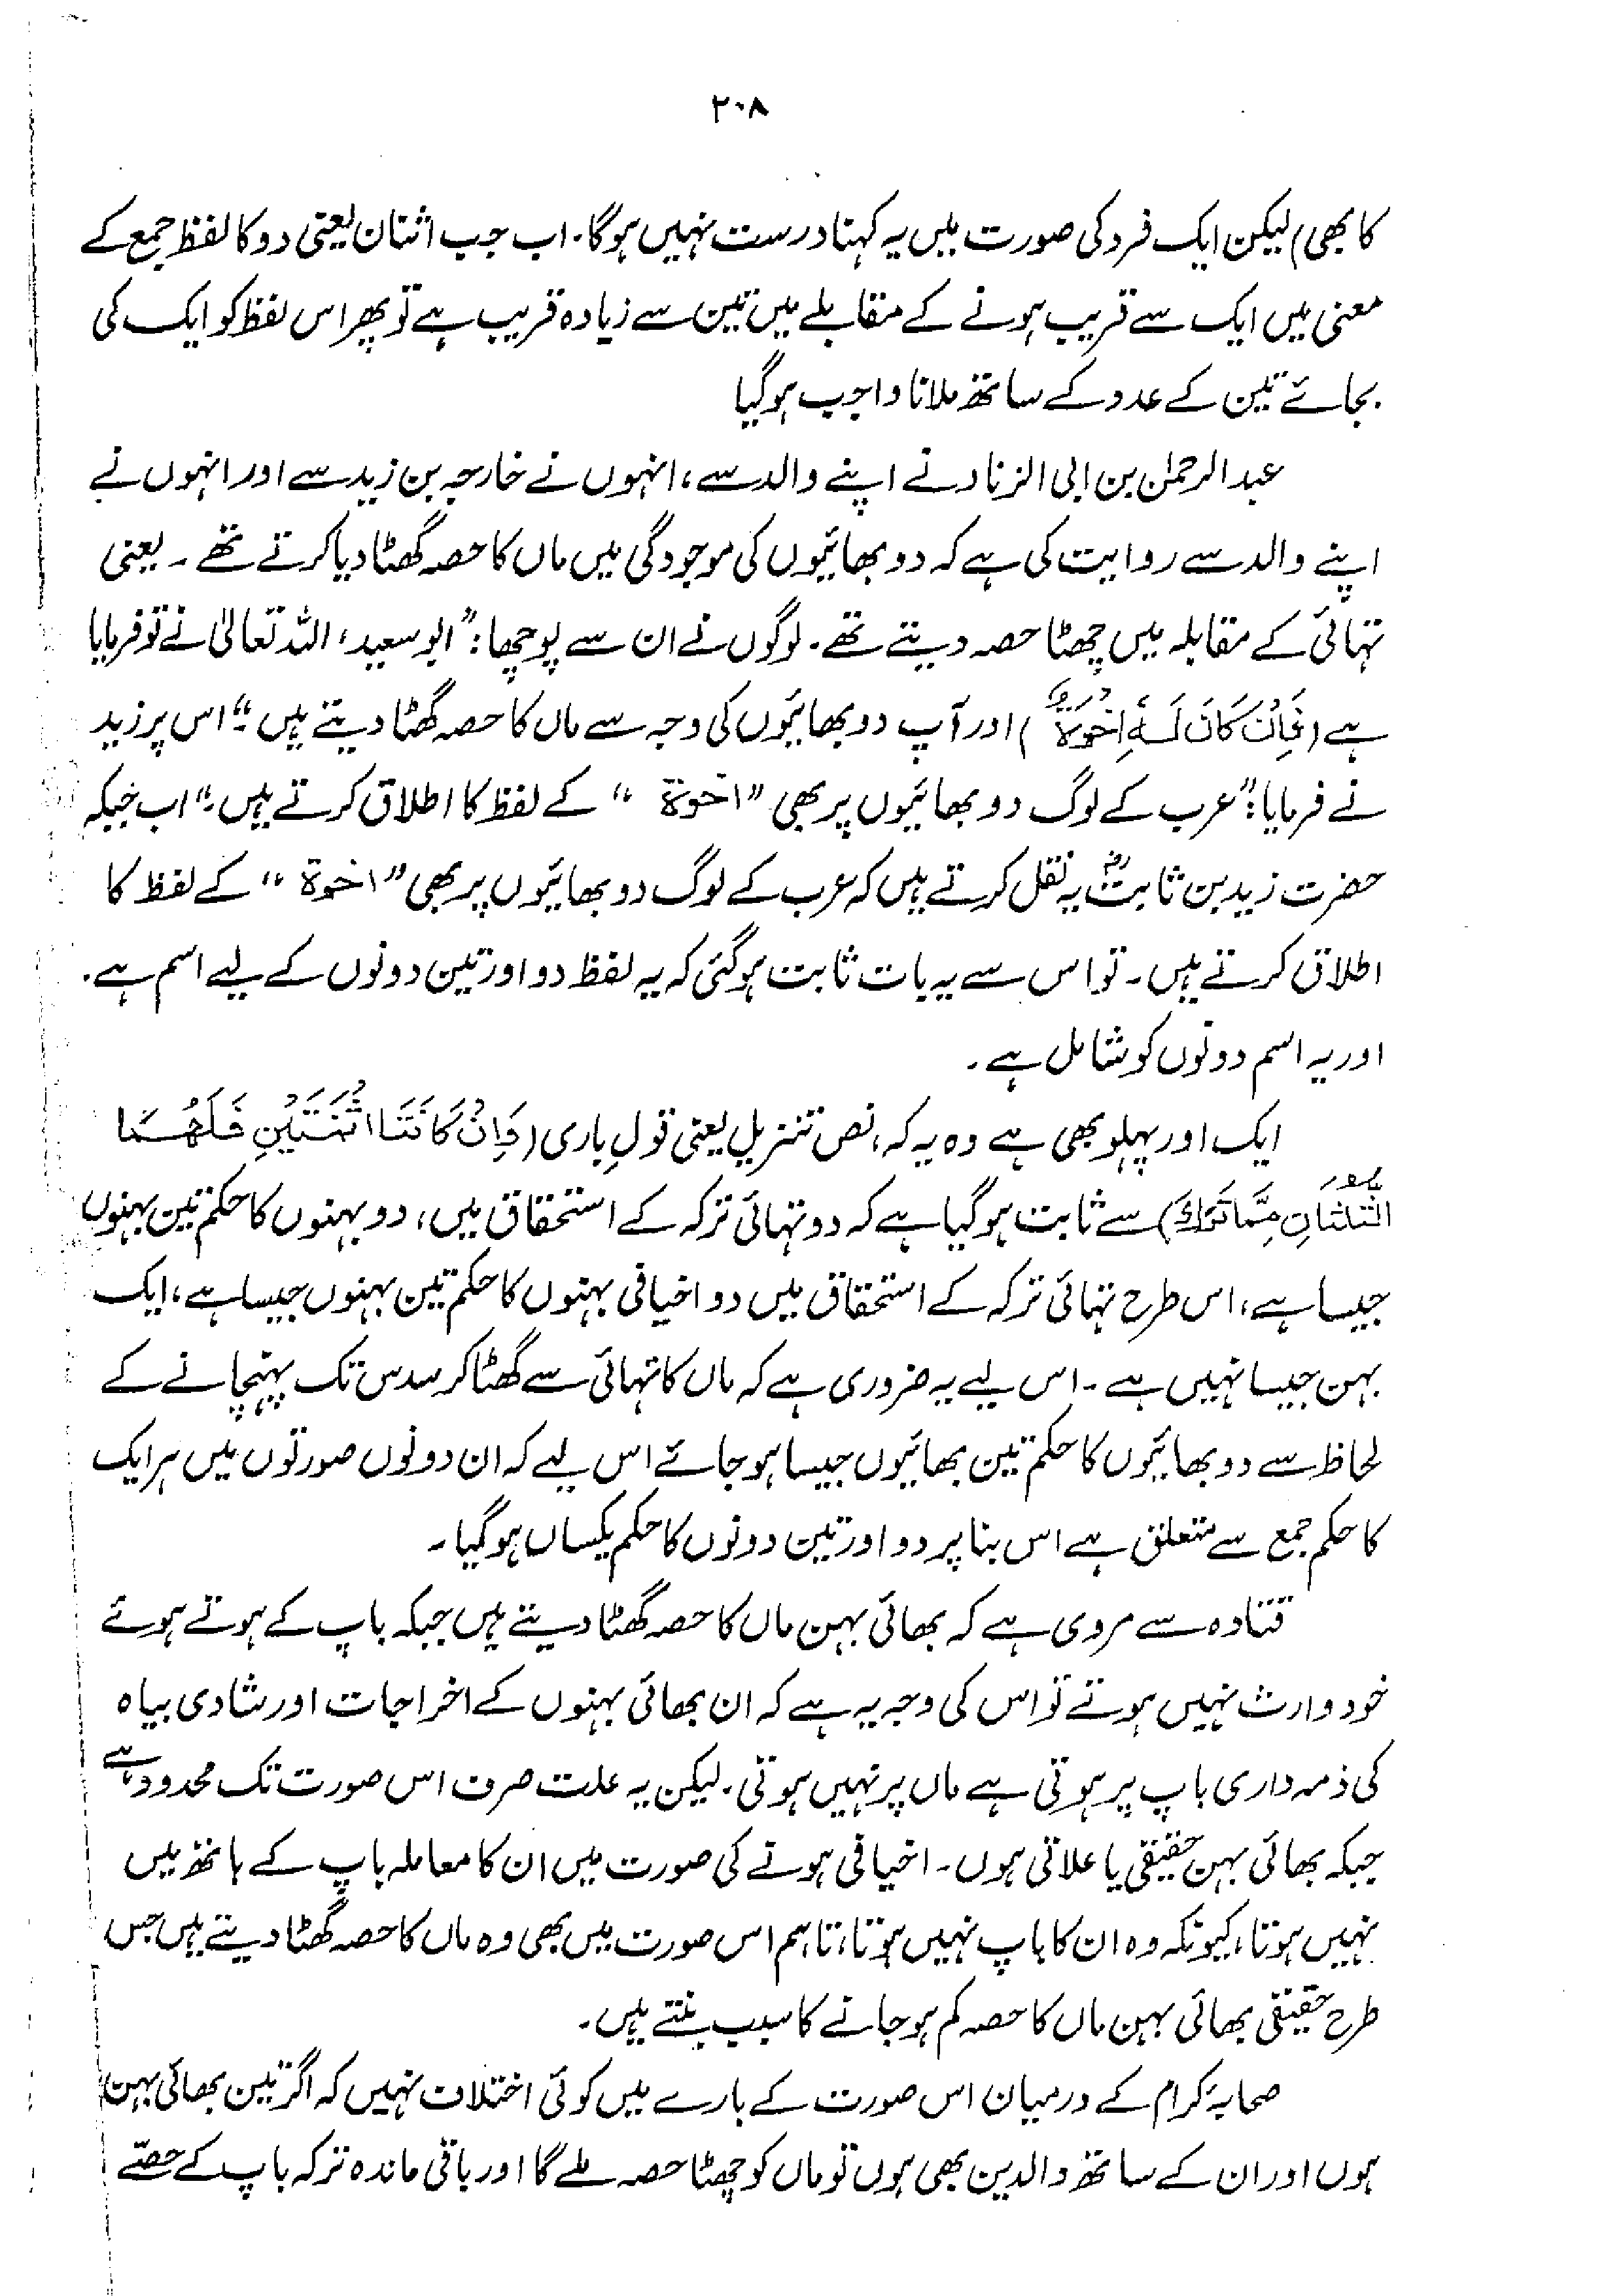 ۲۰۸
کا بھی) لیکن ایک فرد کی صورت میں یہ کہنا درست نہیں ہوگا۔ اب جب اثنتان یعنی دو کا لفظ جمع کے
معنی میں ایک سے قریب ہونے کے مقابلے میں تین سے زیادہ قریب ہے تو پھر اس لفظ کو ایک کی
بجائے تین کے عدد کے ساتھ ملانا واجب ہوگیا
عبدالرحمٰن بن ابی الزناد نے اپنے والد سے، انہوں نے خارجہ بن زید سے اور انہوں نے
اپنے والد سے روایت کی ہے کہ دو بھائیوں کی موجودگی میں ماں کا حصہ گھٹا دیا کرتے تھے۔ یعنی
تہائی کے مقابلہ میں چھٹا حصہ دیتے تھے۔ لوگوں نے ان سے پوچھا: "ابو سعید، اللہ تعالیٰ نے تو فرمایا
ہے (فَاِنْ كَانَ لَهٗ اِخْوَةٌ) اور آپ دو بھائیوں کی وجہ سے ماں کا حصہ گھٹا دیتے ہیں۔" اس پر زید
نے فرمایا: "عرب کے لوگ دو بھائیوں پر بھی "اخوة" کے لفظ کا اطلاق کرتے ہیں۔" اب جبکہ
حضرت زید بن ثابتؓ یہ نقل کرتے ہیں کہ عرب کے لوگ دو بھائیوں پر بھی "اخوة" کے لفظ کا
اطلاق کرتے ہیں۔ تو اس سے یہ بات ثابت ہوگئی کہ یہ لفظ دو اور تین دونوں کے لیے اسم ہے۔
اور یہ اسم دونوں کو شامل ہے۔
ایک اور پہلو بھی ہے وہ یہ کہ، نص تنزیل یعنی قولِ باری (وَاِنْ كَانَتَا اثْنَتَيْنِ فَلَهُمَا
الثُّلُثَانِ مِمَّا تَرَكَ) سے ثابت ہوگیا ہے کہ دو تہائی ترکہ کے استحقاق میں، دو بہنوں کا حکم تین بہنوں
جیسا ہے، اس طرح تہائی ترکہ کے استحقاق میں دو اخیافی بہنوں کا حکم تین بہنوں جیسا ہے، ایک
بہن جیسا نہیں ہے۔ اس لیے یہ ضروری ہے کہ ماں کا تہائی سے گھٹا کر سدس تک پہنچانے کے
لحاظ سے دو بھائیوں کا حکم تین بھائیوں جیسا ہو جائے اس لیے کہ ان دونوں صورتوں میں ہر ایک
کا حکم جمع سے متعلق ہے اس بنا پر دو اور تین دونوں کا حکم یکساں ہوگیا۔
قتادہ سے مروی ہے کہ بھائی بہن ماں کا حصہ گھٹا دیتے ہیں جبکہ باپ کے ہوتے ہوئے
خود وارث نہیں ہوتے تو اس کی وجہ یہ ہے کہ ان بھائی بہنوں کے اخراجات اور شادی بیاہ
کی ذمہ داری باپ پر ہوتی ہے ماں پر نہیں ہوتی۔ لیکن یہ علت صرف اس صورت تک محدود ہے
جبکہ بھائی بہن حقیقی یا علاتی ہوں۔ اخیافی ہونے کی صورت میں ان کا معاملہ باپ کے ہاتھ میں
نہیں ہوتا، کیونکہ وہ ان کا باپ نہیں ہوتا، تاہم اس صورت میں بھی وہ ماں کا حصہ گھٹا دیتے ہیں جس
طرح حقیقی بھائی بہن ماں کا حصہ کم ہو جانے کا سبب بنتے ہیں۔
صحابہ کرام کے درمیان اس صورت کے بارے میں کوئی اختلاف نہیں کہ اگر تین بھائی بہن
ہوں اور ان کے ساتھ والدین بھی ہوں تو ماں کو چھٹا حصہ ملے گا اور باقی ماندہ ترکہ باپ کے حصّے